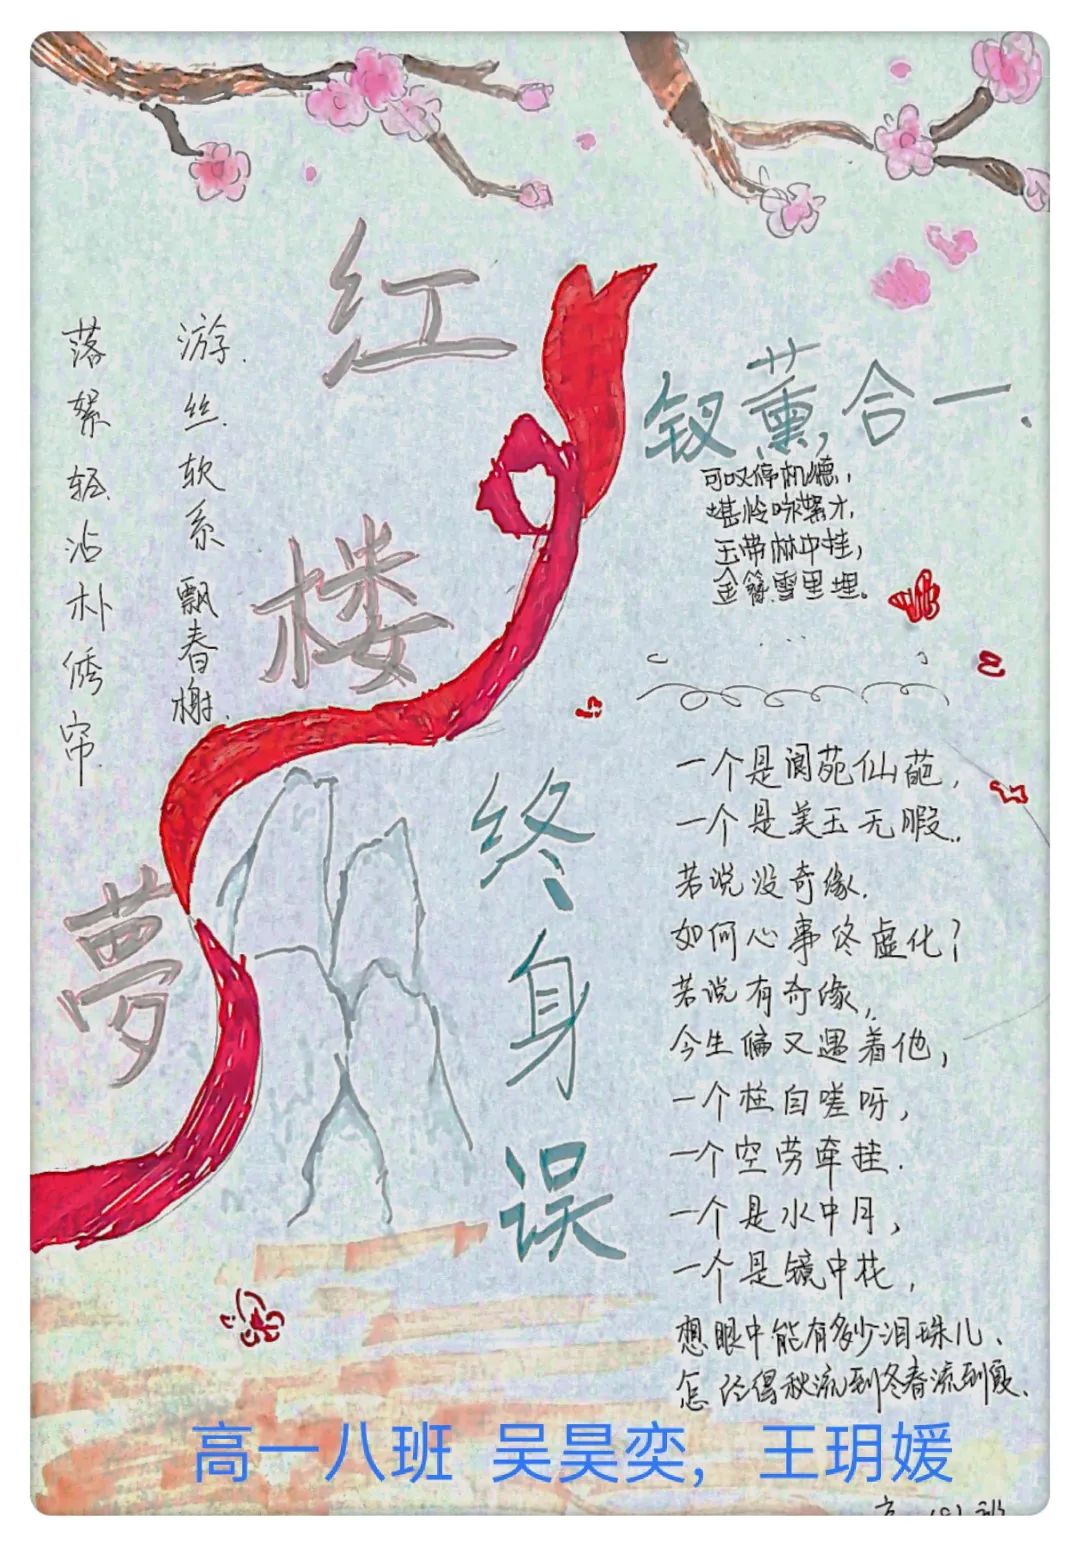 红楼夢
游丝软系飘春榭.
落絮轻沾朴俢帘.
钗薰合一.
可叹停机德,
堪怜咏絮才,
玉带林中挂,
金簪雪里埋。
终身误
一个是阆苑仙葩,
一个是美玉无暇.
若说没奇缘.
如何心事终虚化?
若说有奇缘,
今生偏又遇着他,
一个枉自嗟呀,
一个空劳牵挂.
一个是水中月,
一个是镜中花,
想眼中能有多少泪珠儿、
怎经得秋流到冬春流到夏.
高一八班 吴昊奕, 王玥媛